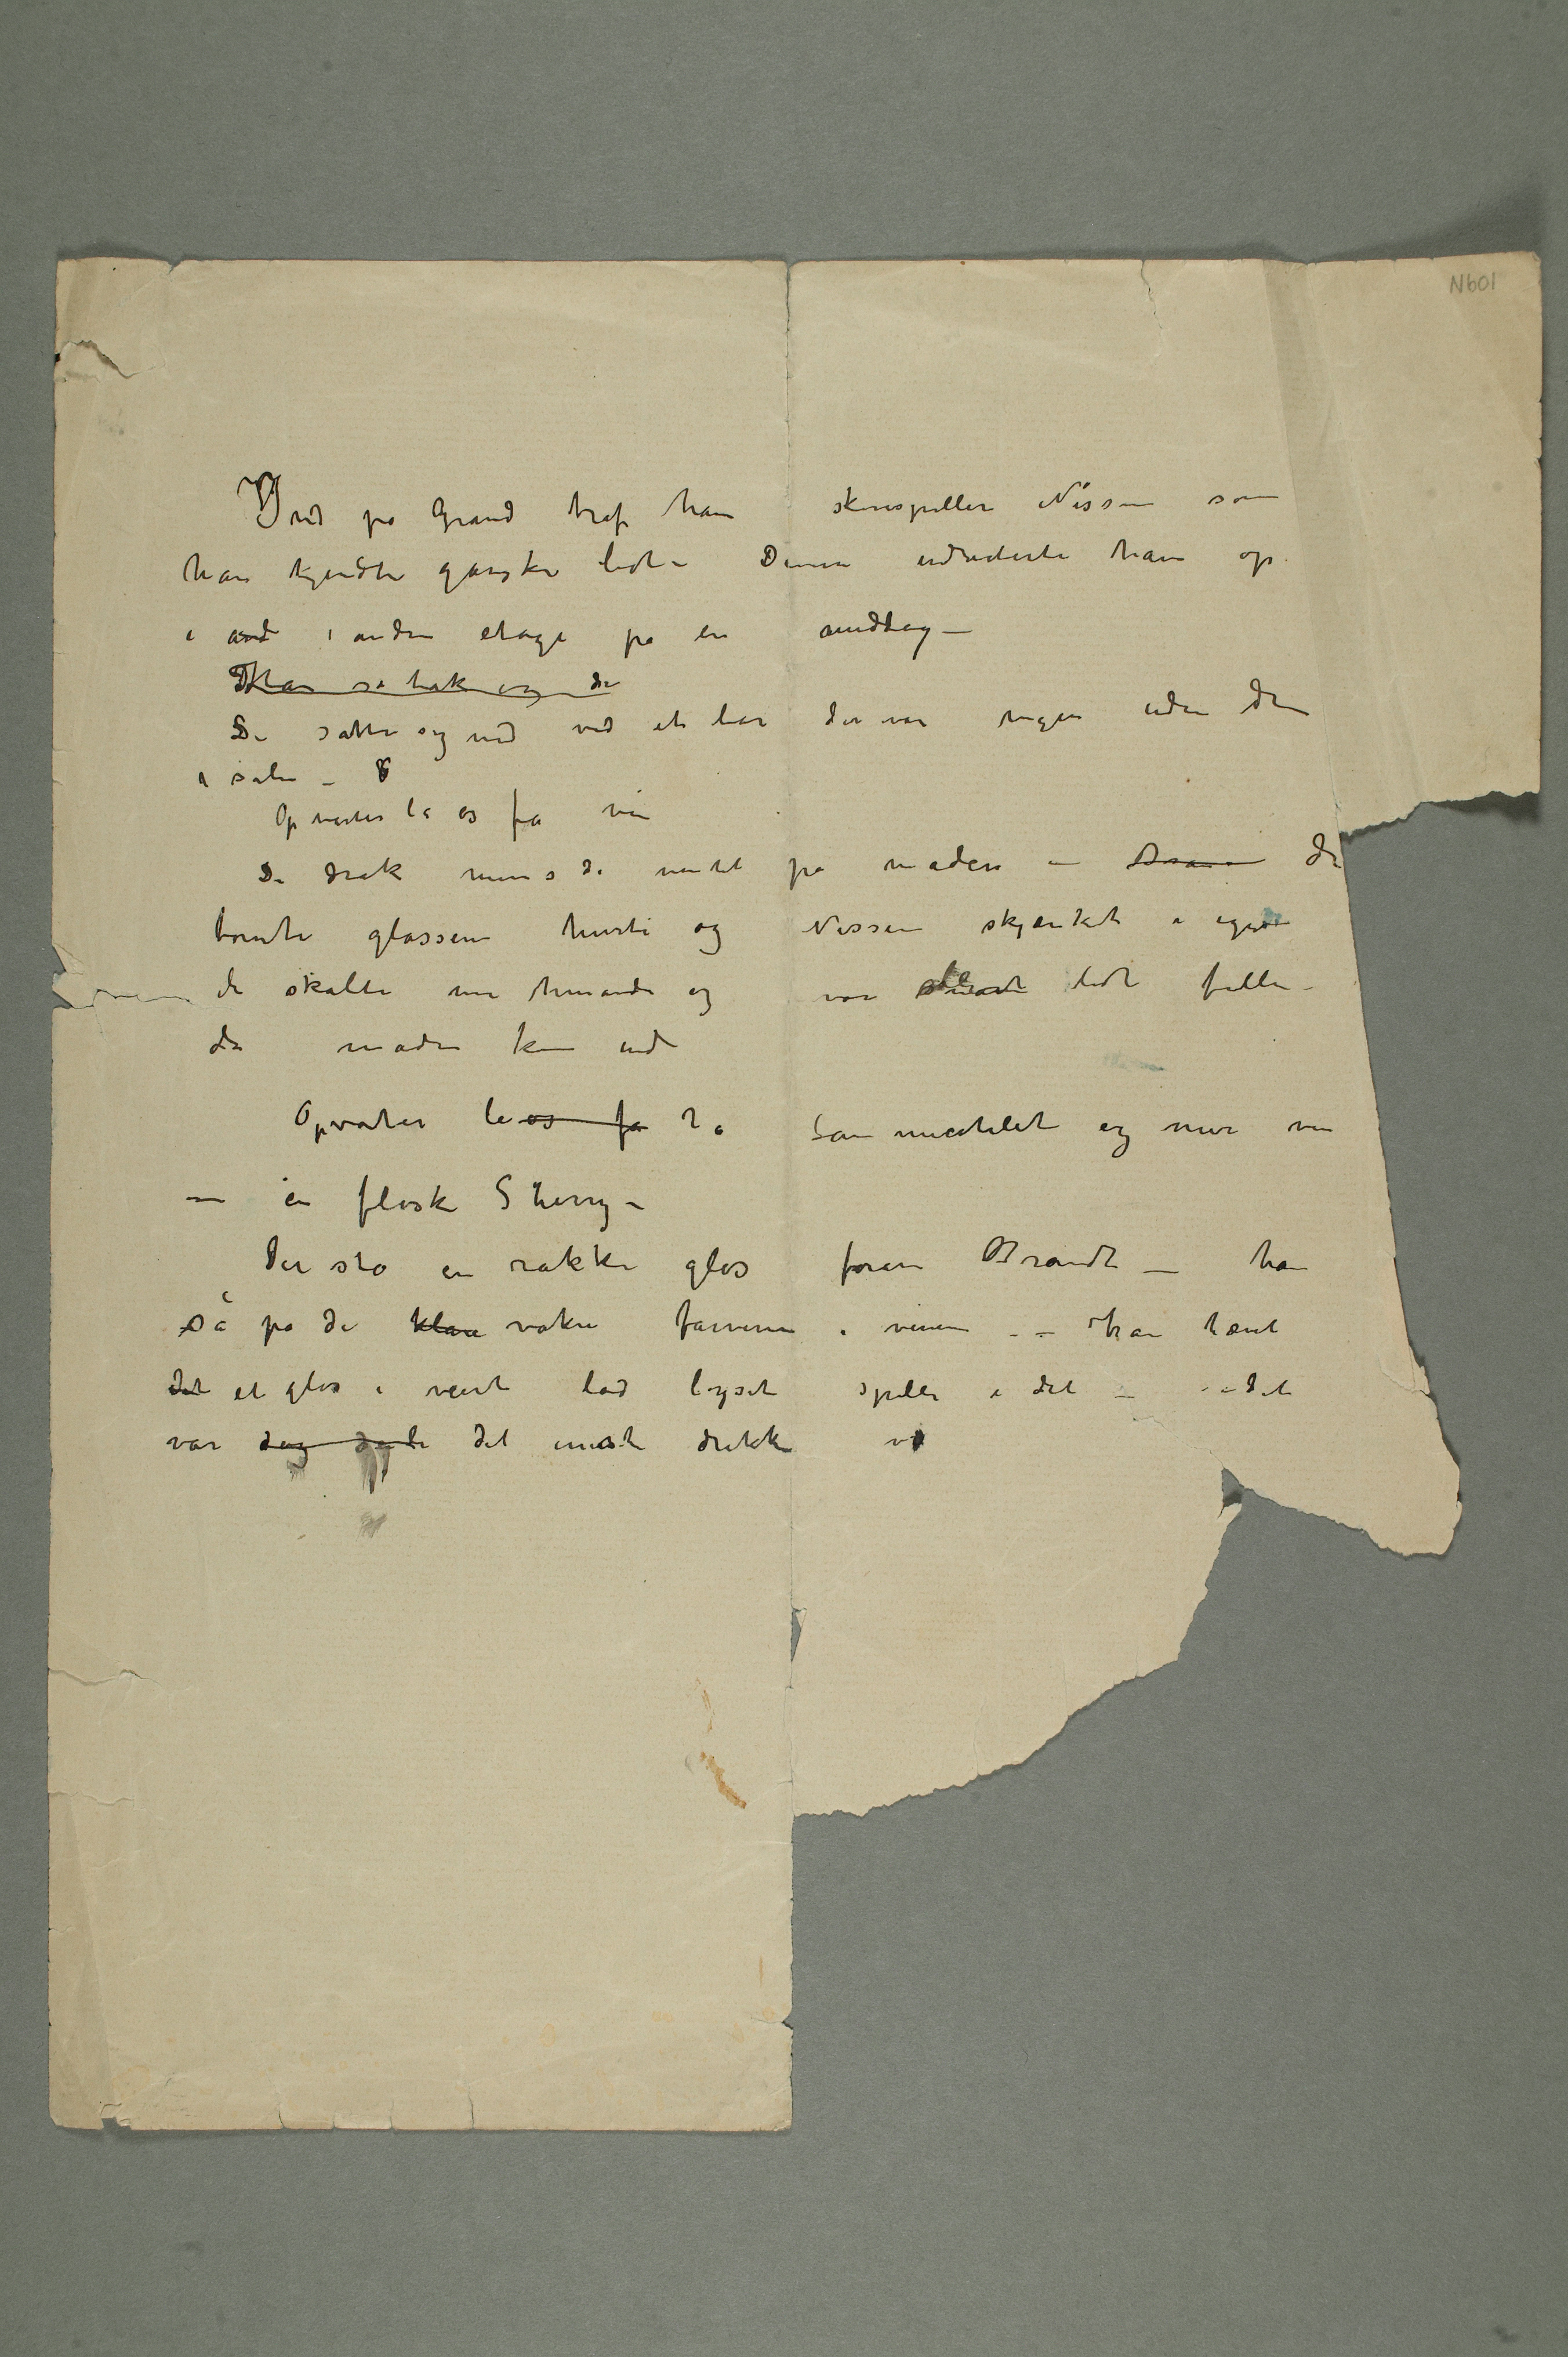 N601
Ind på Grand traf han skuespiller Nissen som
han kjendte ganske lidt – Denne inviterte ham op
i and i anden etage på en middag –
Han sa tak og de
De satte sig ned ved et bor der var ingen uden dem
i salen –
Opvarter la os få vin
De drak mens de ventet på maden – De
tømte glassene hurti og Nissen skjænket i igjen
de skålte med hinanden og var snart lidt fulle –
da maden kom ind
Opvarter la os få to og mer vin
– en flaske Sherry –
Der sto en række glas foran Brandt – han
så på de klare vakre farverne i vinen – – han hævet
det et glas i veiret lod lyset spille i det – – det
var dog det eneste drikke